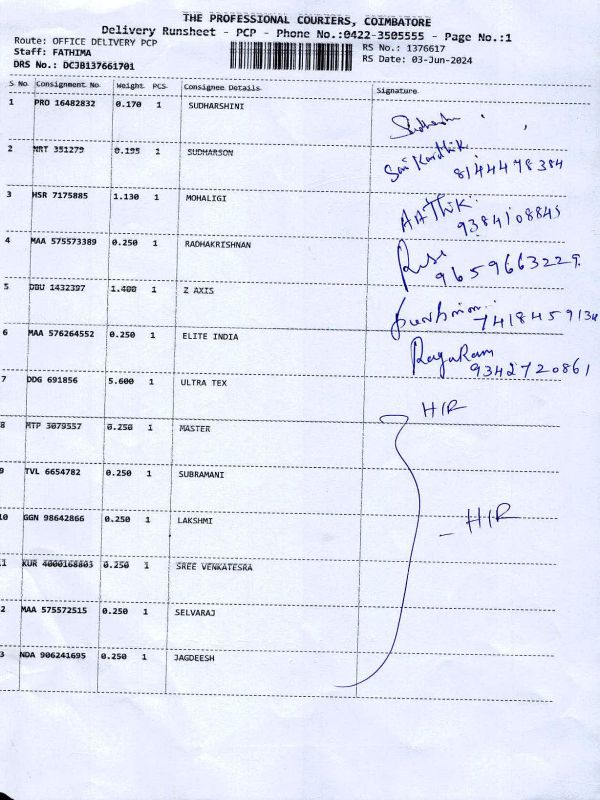 THE PROFESSIONAL COURIERS, COIMBATORE
Delivery Runsheet - PCP - Phone No.:0422-3505555 - Page No.:1
Route: OFFICE DELIVERY PCP
RS No.: 1376617
Staff: FATHIMA
RS Date: 03-Jun-2024
DRS No.: DCJB137661701
S No Consignment No Weight PCS Consignee Details Signature
1 PRO 16482832 0.170 1 SUDHARSHINI
2 NRT 351279 0.195 1 SUDHARSON Sri Karthik
8144478384
3 HSR 7175885 1.130 1 MOHALIGI AATHIK
9384108845
4 MAA 575573389 0.250 1 RADHAKRISHNAN
9659663229
5 DBU 1432397 1.400 1 Z AXIS
7418459134
6 MAA 576264552 0.250 1 ELITE INDIA RagaRam
9342720861
7 DDG 691856 5.600 1 ULTRA TEX H/R
8 MTP 3079557 0.250 1 MASTER
9 TVL 6654782 0.250 1 SUBRAMANI
10 GGN 98642866 0.250 1 LAKSHMI - H/R
1 KUR 4000168803 0.250 1 SREE VENKATESRA
2 MAA 575572515 0.250 1 SELVARAJ
3 NDA 906241695 0.250 1 JAGDEESH